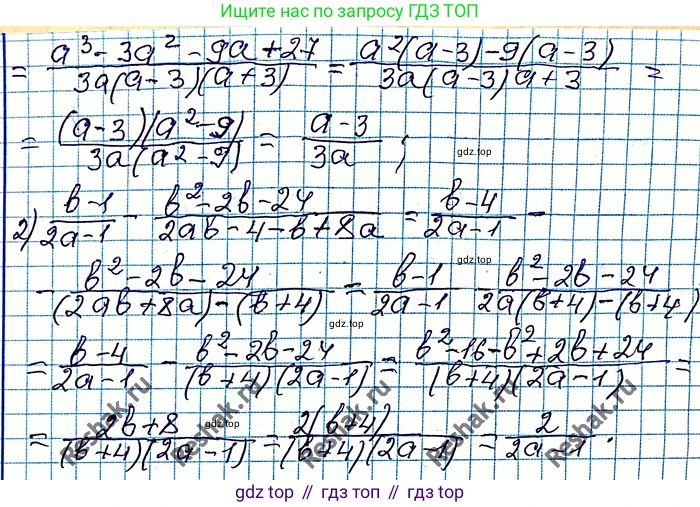 Ищите нас по запросу ГДЗ ТОП
= (a³ - 3a² - 9a + 27)/(3a(a-3)(a+3)) = (a²(a-3) - 9(a-3))/(3a(a-3)a+3) =
= ((a-3)(a²-9))/(3a(a²-9)) = (a-3)/(3a) ;
gdz.top
2) (b-1)/(2a-1) - (b²-2b-24)/(2ab-4-b+8a) = (b-4)/(2a-1) -
gdz.top
- (b²-2b-24)/((2ab+8a)-(b+4)) = (b-1)/(2a-1) (b²-2b-24)/(2a(b+4)-(b+4))
gdz.top
= (b-4)/(2a-1) - (b²-2b-24)/((b+4)(2a-1)) = (b²-16-b²+2b+24)/((b+4)(2a-1)) =
= (2b+8)/((b+4)(2a-1)) = (2(b+4))/((b+4)(2a-1)) = 2/(2a-1) .
gdz.top
Reshak.ru
Reshak.ru
Reshak.ru
Reshak.ru
gdz top // гдз топ // gdz top